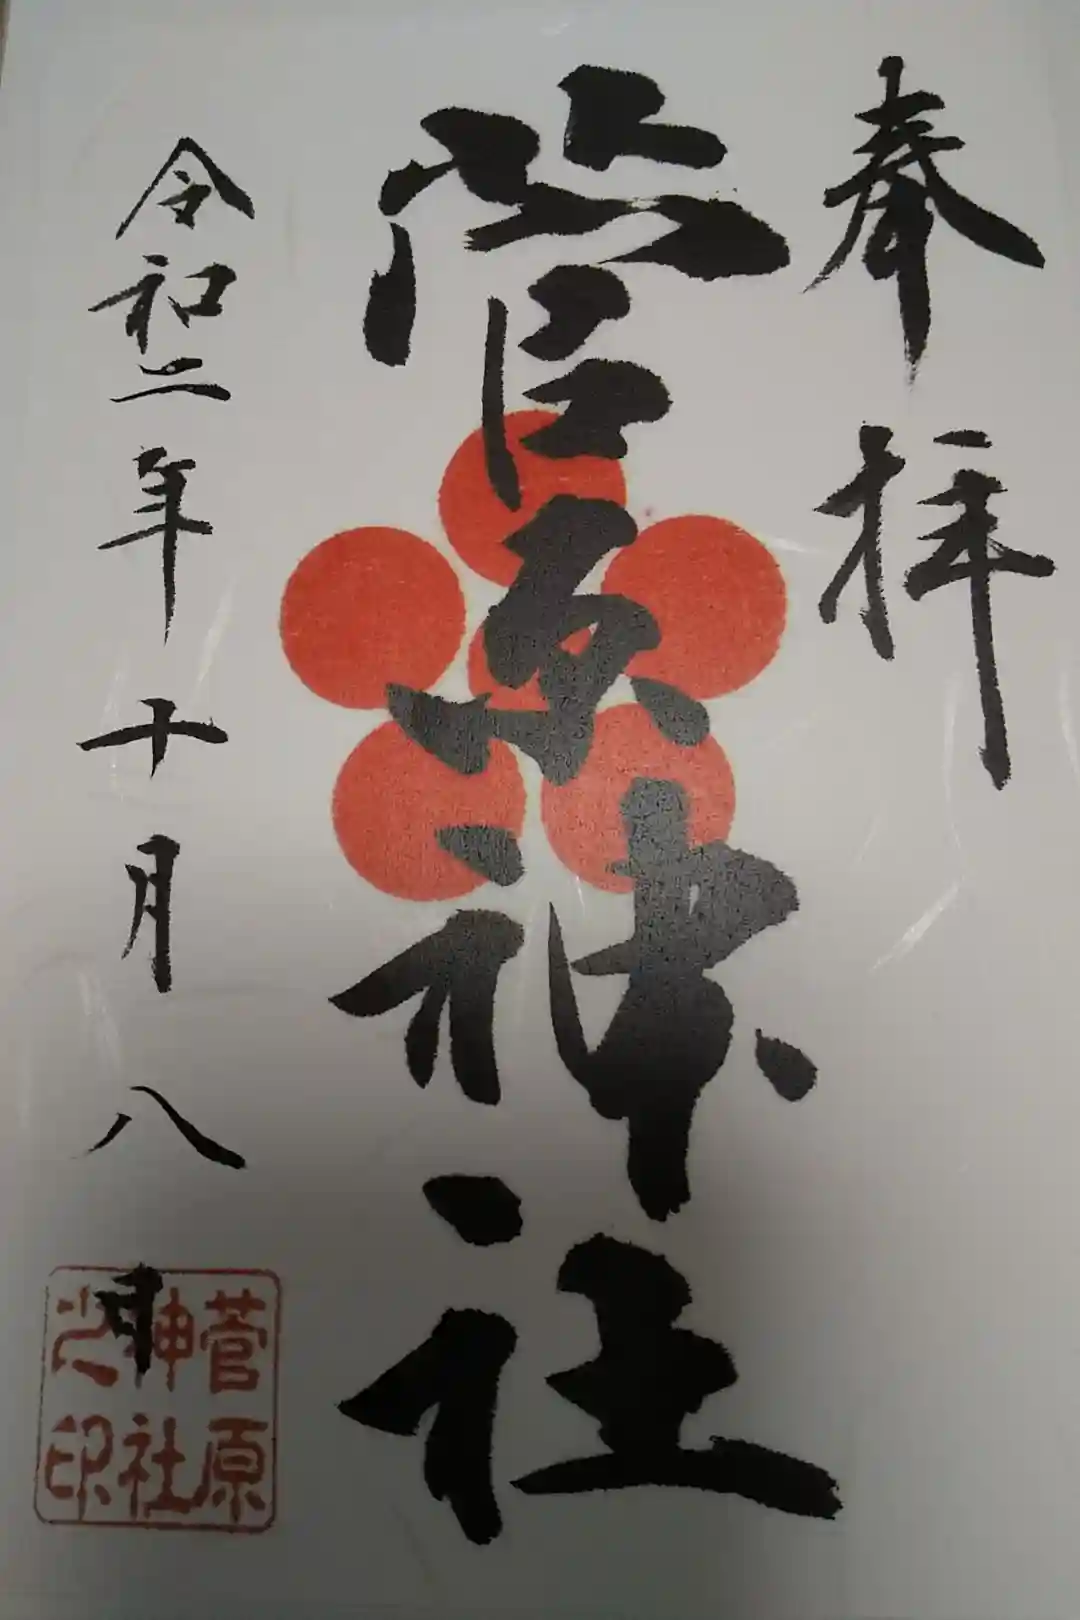 奉拝
菅原神社
令和二年十月八日
菅原
神社
之印